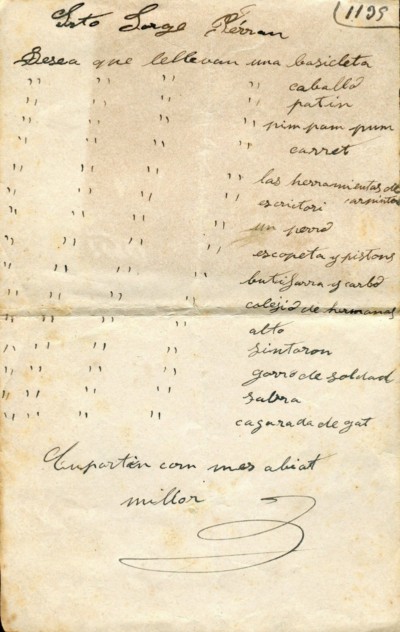 1199
Jorge Ferran
Desea que lellevan una basicleta
" " " " caballo
" " " " patin
" " " " pim pam pum
" " " " carret
" " " " las herramientas de
" " " " escritori carpinter
" " " " un perro
" " " " escopeta y pistons
" " " " butifarra y carbo
" " " " colejio de hermanos
" " " " alto
" " " " sintoron
" " " " gorro de soldad
" " " " sabra
" " " " cagarada de gat
Cuportin com mes abiat
millor